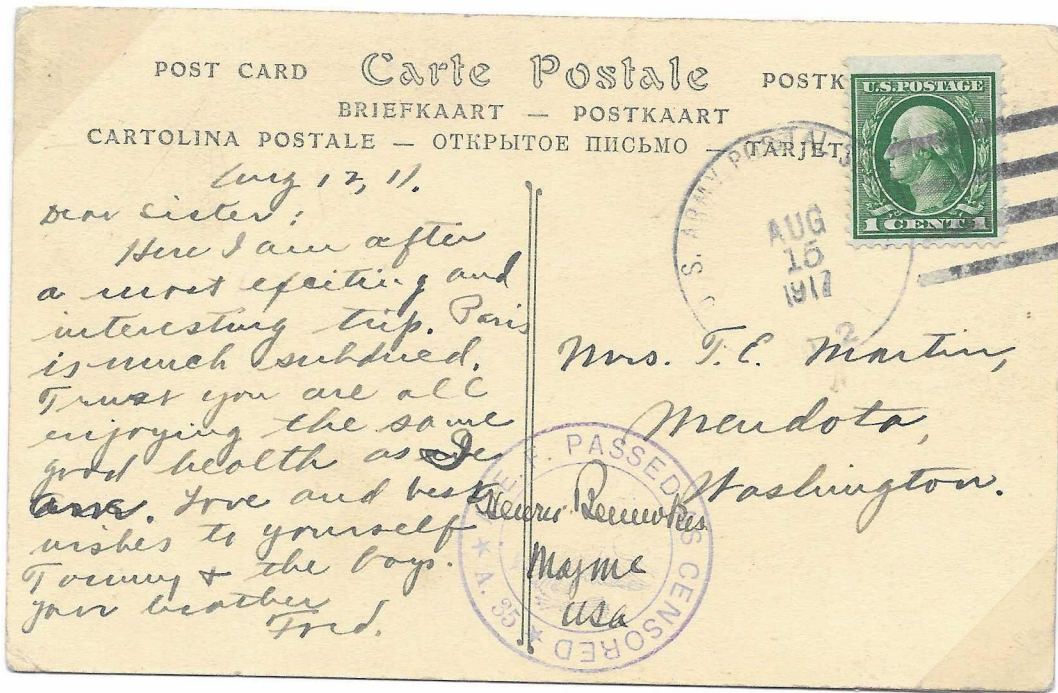 POST CARD Carte Postale POSTK
BRIEFKAART — POSTKAART
CARTOLINA POSTALE — ОТКРЫТОЕ ПИСЬМО — TARJET
U.S. POSTAGE
1 CENT 1
U. S. ARMY POSTAL
AUG
15
1917
2
Aug 12, 17.
Dear Sister:
Here I am after
a most exciting and
interesting trip. Paris
is much subdued.
Trust you are all
enjoying the same
good health as I
am. Love and best
wishes to yourself
Tommy & the boys.
your brother
Fred.
Mrs. T. C. Martin,
Mendota,
Washington.
A. E. F. PASSED AS CENSORED
★ A. 35 ★
USA